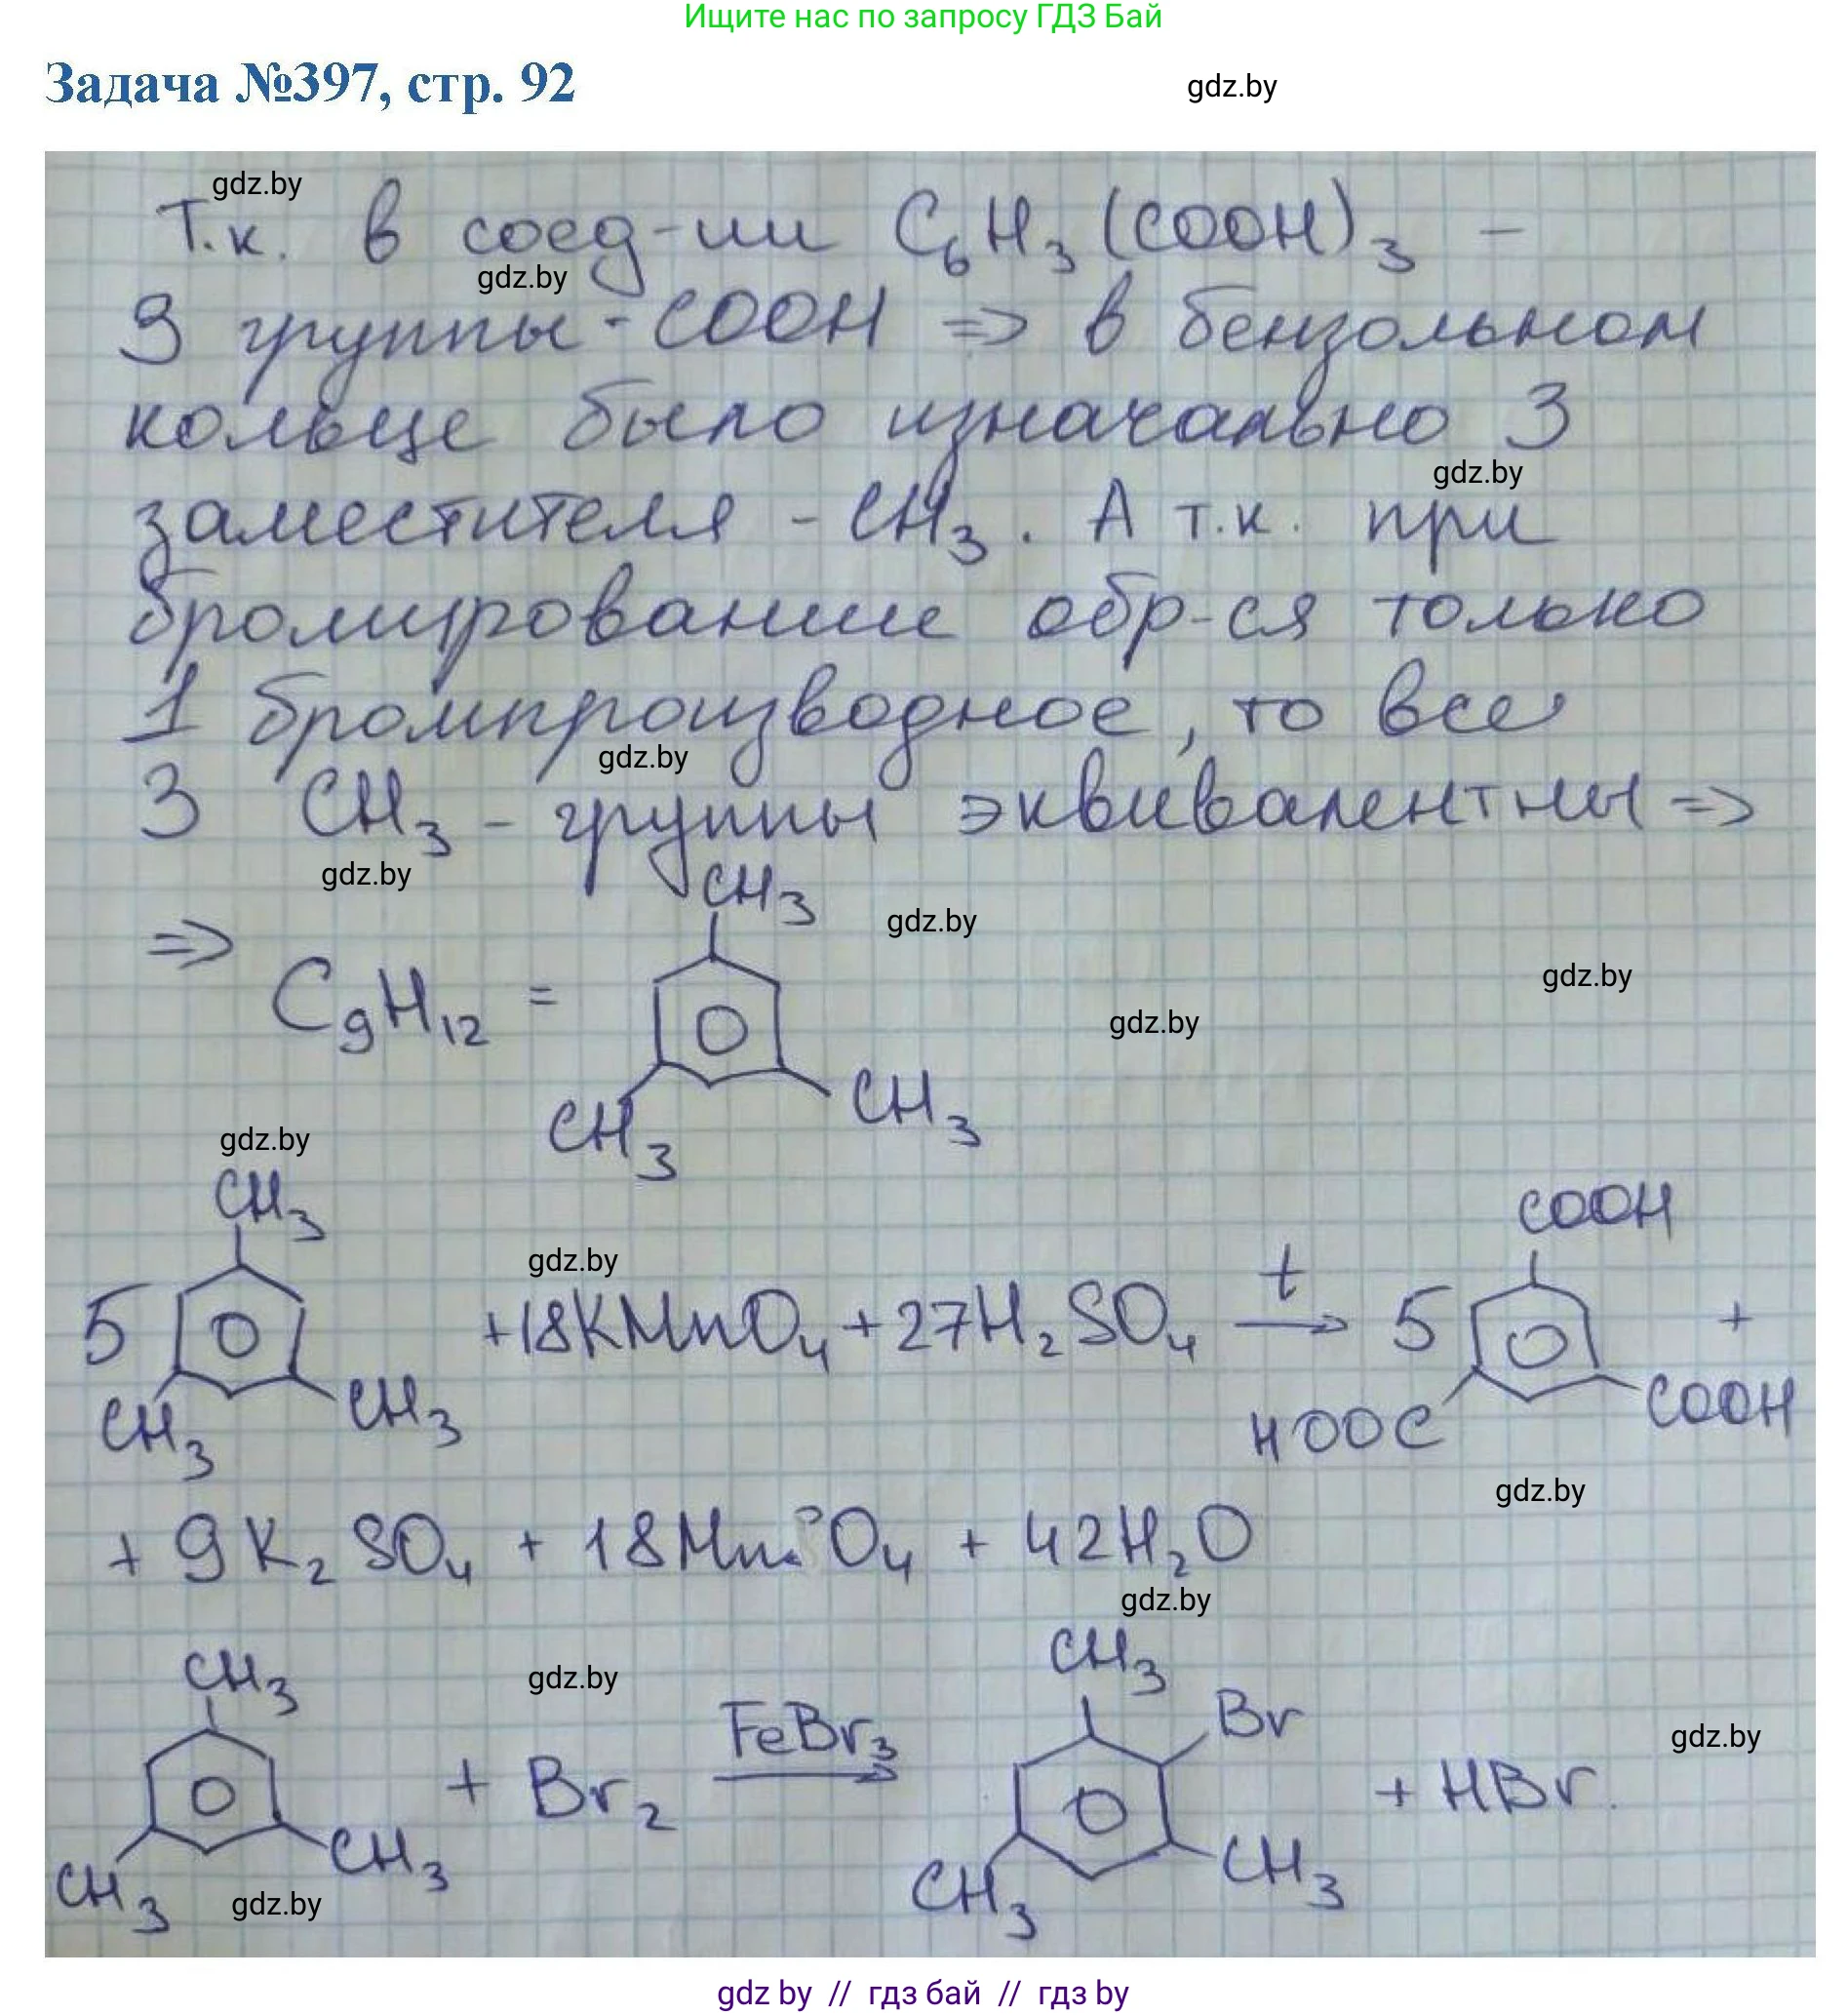 Ищите нас по запросу ГДЗ Бай
Задача №397, стр. 92
gdz.by
gdz.by
Т.к. в соед-ии C₆H₃(COOH)₃ –
gdz.by
3 группы -COOH => в бензольном
кольце было изначально 3
gdz.by
заместителя -CH₃. А т.к. при
бромировании обр-ся только
1 бромпроизводное, то все
gdz.by
3 CH₃ - группы эквивалентны =>
gdz.by
CH₃
gdz.by
=> C₉H₁₂ =
gdz.by
gdz.by
CH₃ CH₃
gdz.by
CH₃ COOH
gdz.by
5 +18KMnO₄ + 27H₂SO₄ t → 5 +
CH₃ CH₃ HOOC COOH
gdz.by
+ 9K₂SO₄ + 18MnSO₄ + 42H₂O
gdz.by
CH₃ CH₃
gdz.by
Br
gdz.by
+ Br₂ FeBr₃ → + HBr.
CH₃ CH₃ CH₃ CH₃
gdz.by
gdz by // гдз бай // гдз by